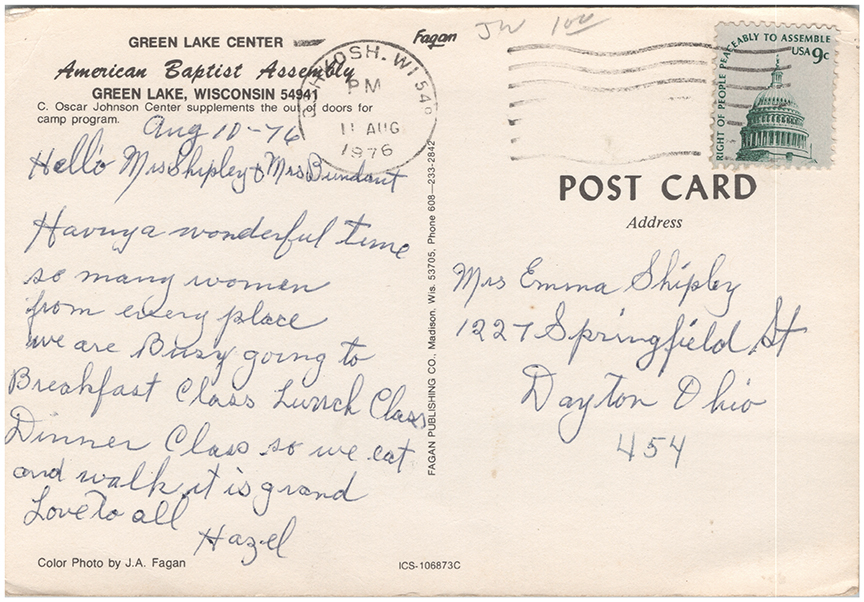 GREEN LAKE CENTER
American Baptist Assembly
GREEN LAKE, WISCONSIN 54941
C. Oscar Johnson Center supplements the out of doors for
camp program.
Aug 10-76
Hello Mrs Shipley & Mrs Bundant
Having a wonderful time
so many women
from every place
we are Busy going to
Breakfast Class Lunch Class
Dinner Class so we eat
and walk it is grand
Love to all
Hazel
Color Photo by J.A. Fagan
OSHKOSH, WI 549
PM
11 AUG
1976
Fagan
JW 100
FAGAN PUBLISHING CO., Madison, Wis. 53705, Phone 608-233-2842
ICS-106873C
RIGHT OF PEOPLE PEACEABLY TO ASSEMBLE
USA 9c
POST CARD
Address
Mrs Emma Shipley
1227 Springfield St
Dayton Ohio
454